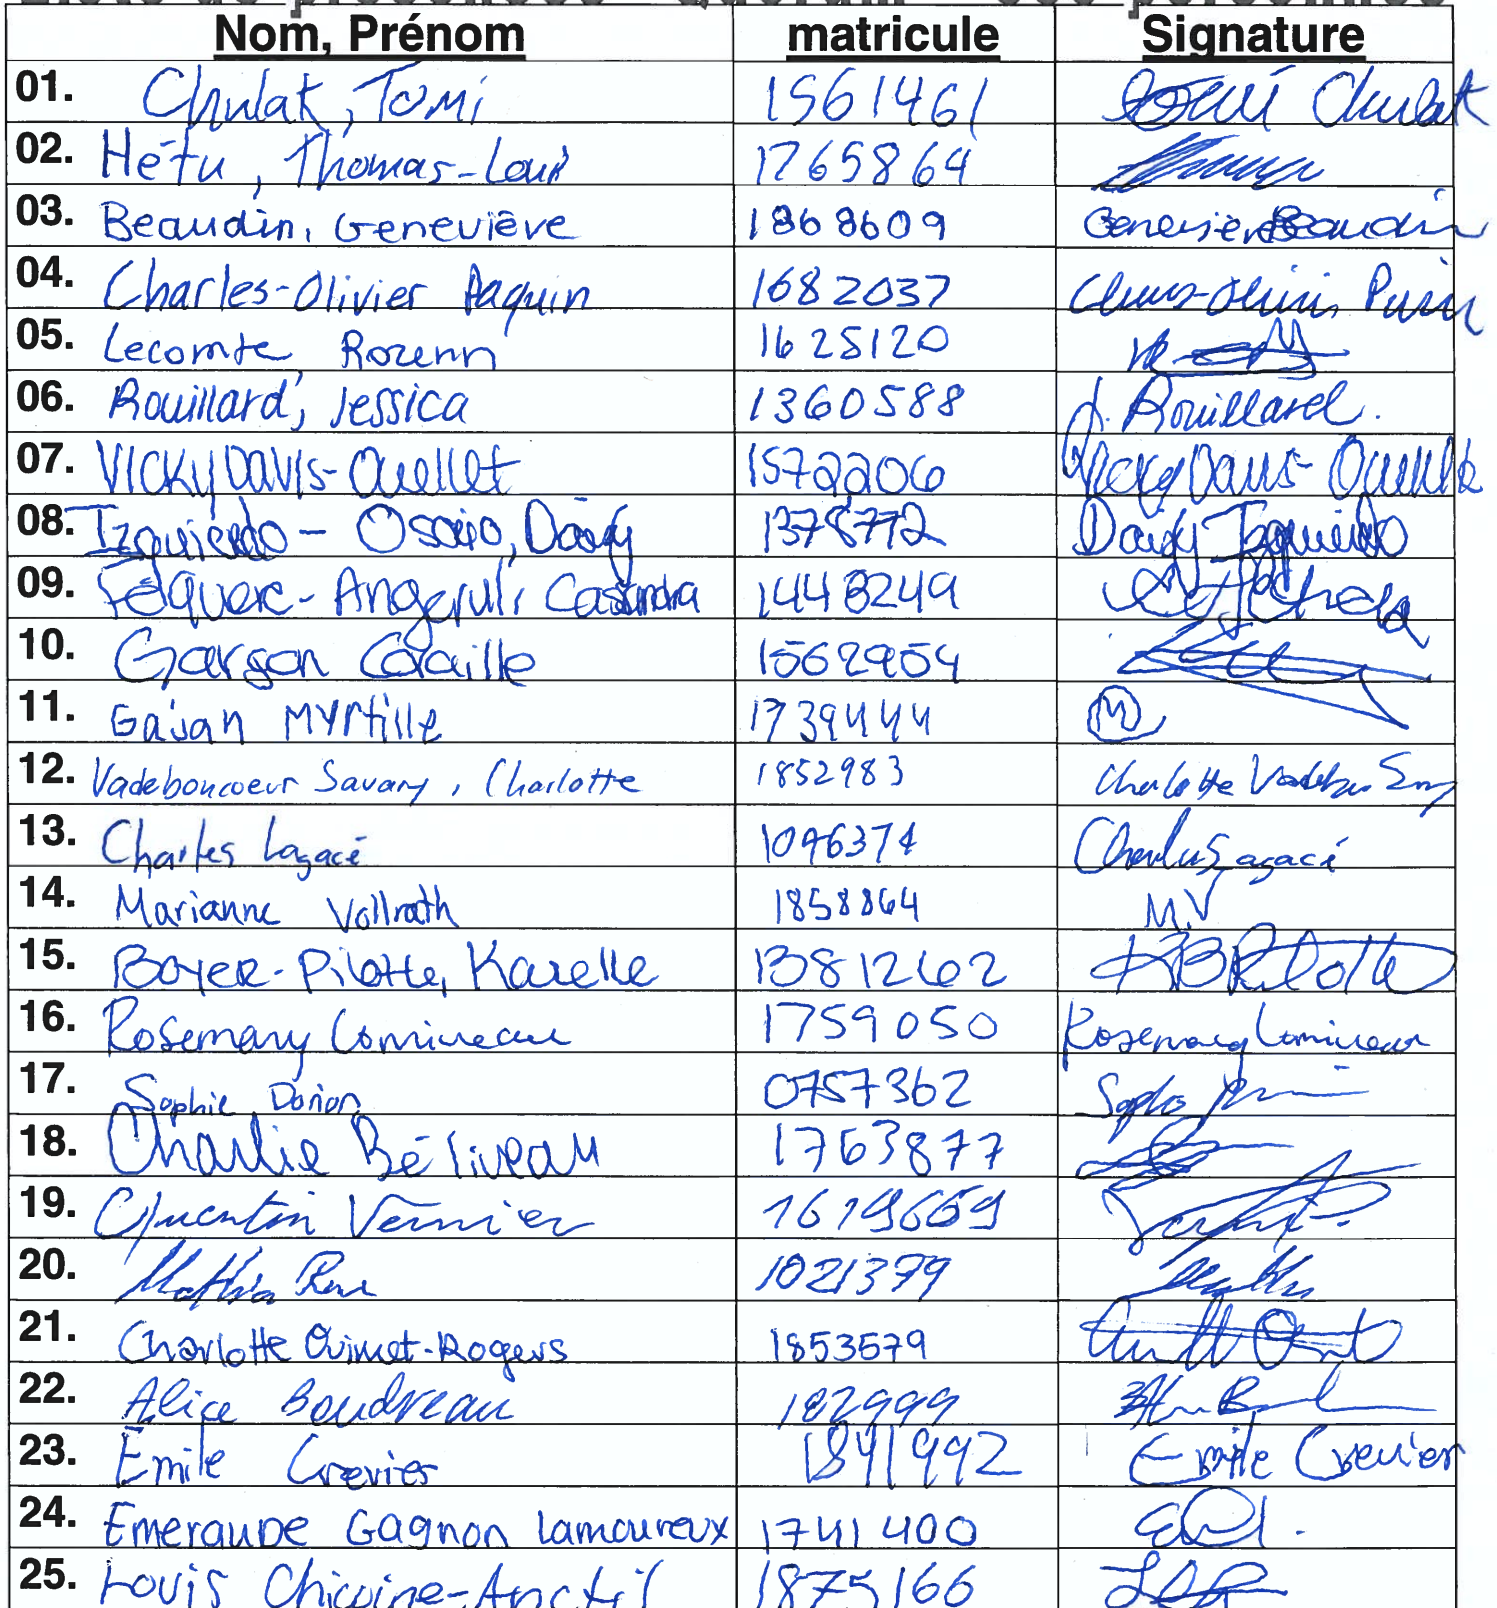 Nom, Prénom matricule Signature
01. Chulak, Tomi 1561461 Chulak
02. Hétu, Thomas-Louis 1765864
03. Beaudin, Geneviève 1868609 Geneviève Beaudin
04. Charles-Olivier Paquin 1682037
05. Lecomte Rozenn 1625120
06. Rouillard, Jessica 1360588 J. Rouillard.
07. VICKY DAVIS-Ouellet 1572206 Vicky Davis-Ouellet
08. Izquierdo - Osorio, Daidy 1378772 Daidy Izquierdo
09. Cassandra 1448249
10. Garson Coraille 1562954
11. Gaisan MYrtille 1739444 M
12. Vadeboncoeur Savary, Charlotte 1852983 Charlotte
13. Charles Lagacé 1096374 Charles Lagacé
14. Marianne Vollrath 1858864 M.V
15. Boyer-Pilotte, Karelle 1381262 KBPilotte
16. Rosemary Lamineau 1759050 Rosemary Lamineau
17. Sophie Dorion 0757362
18. Charlie Béliveau 1763877
19. Quentin Vernier 1619669
20. Mathia 1021379
21. Charlotte Ouimet-Rogers 1853579
22. Alice Boudreau 182999
23. Emile Crevier 1841992 Emile Crevier
24. EmerauDe Gagnon Lamoureux 1741400
25. Louis Chicoine-Anctil 1875166